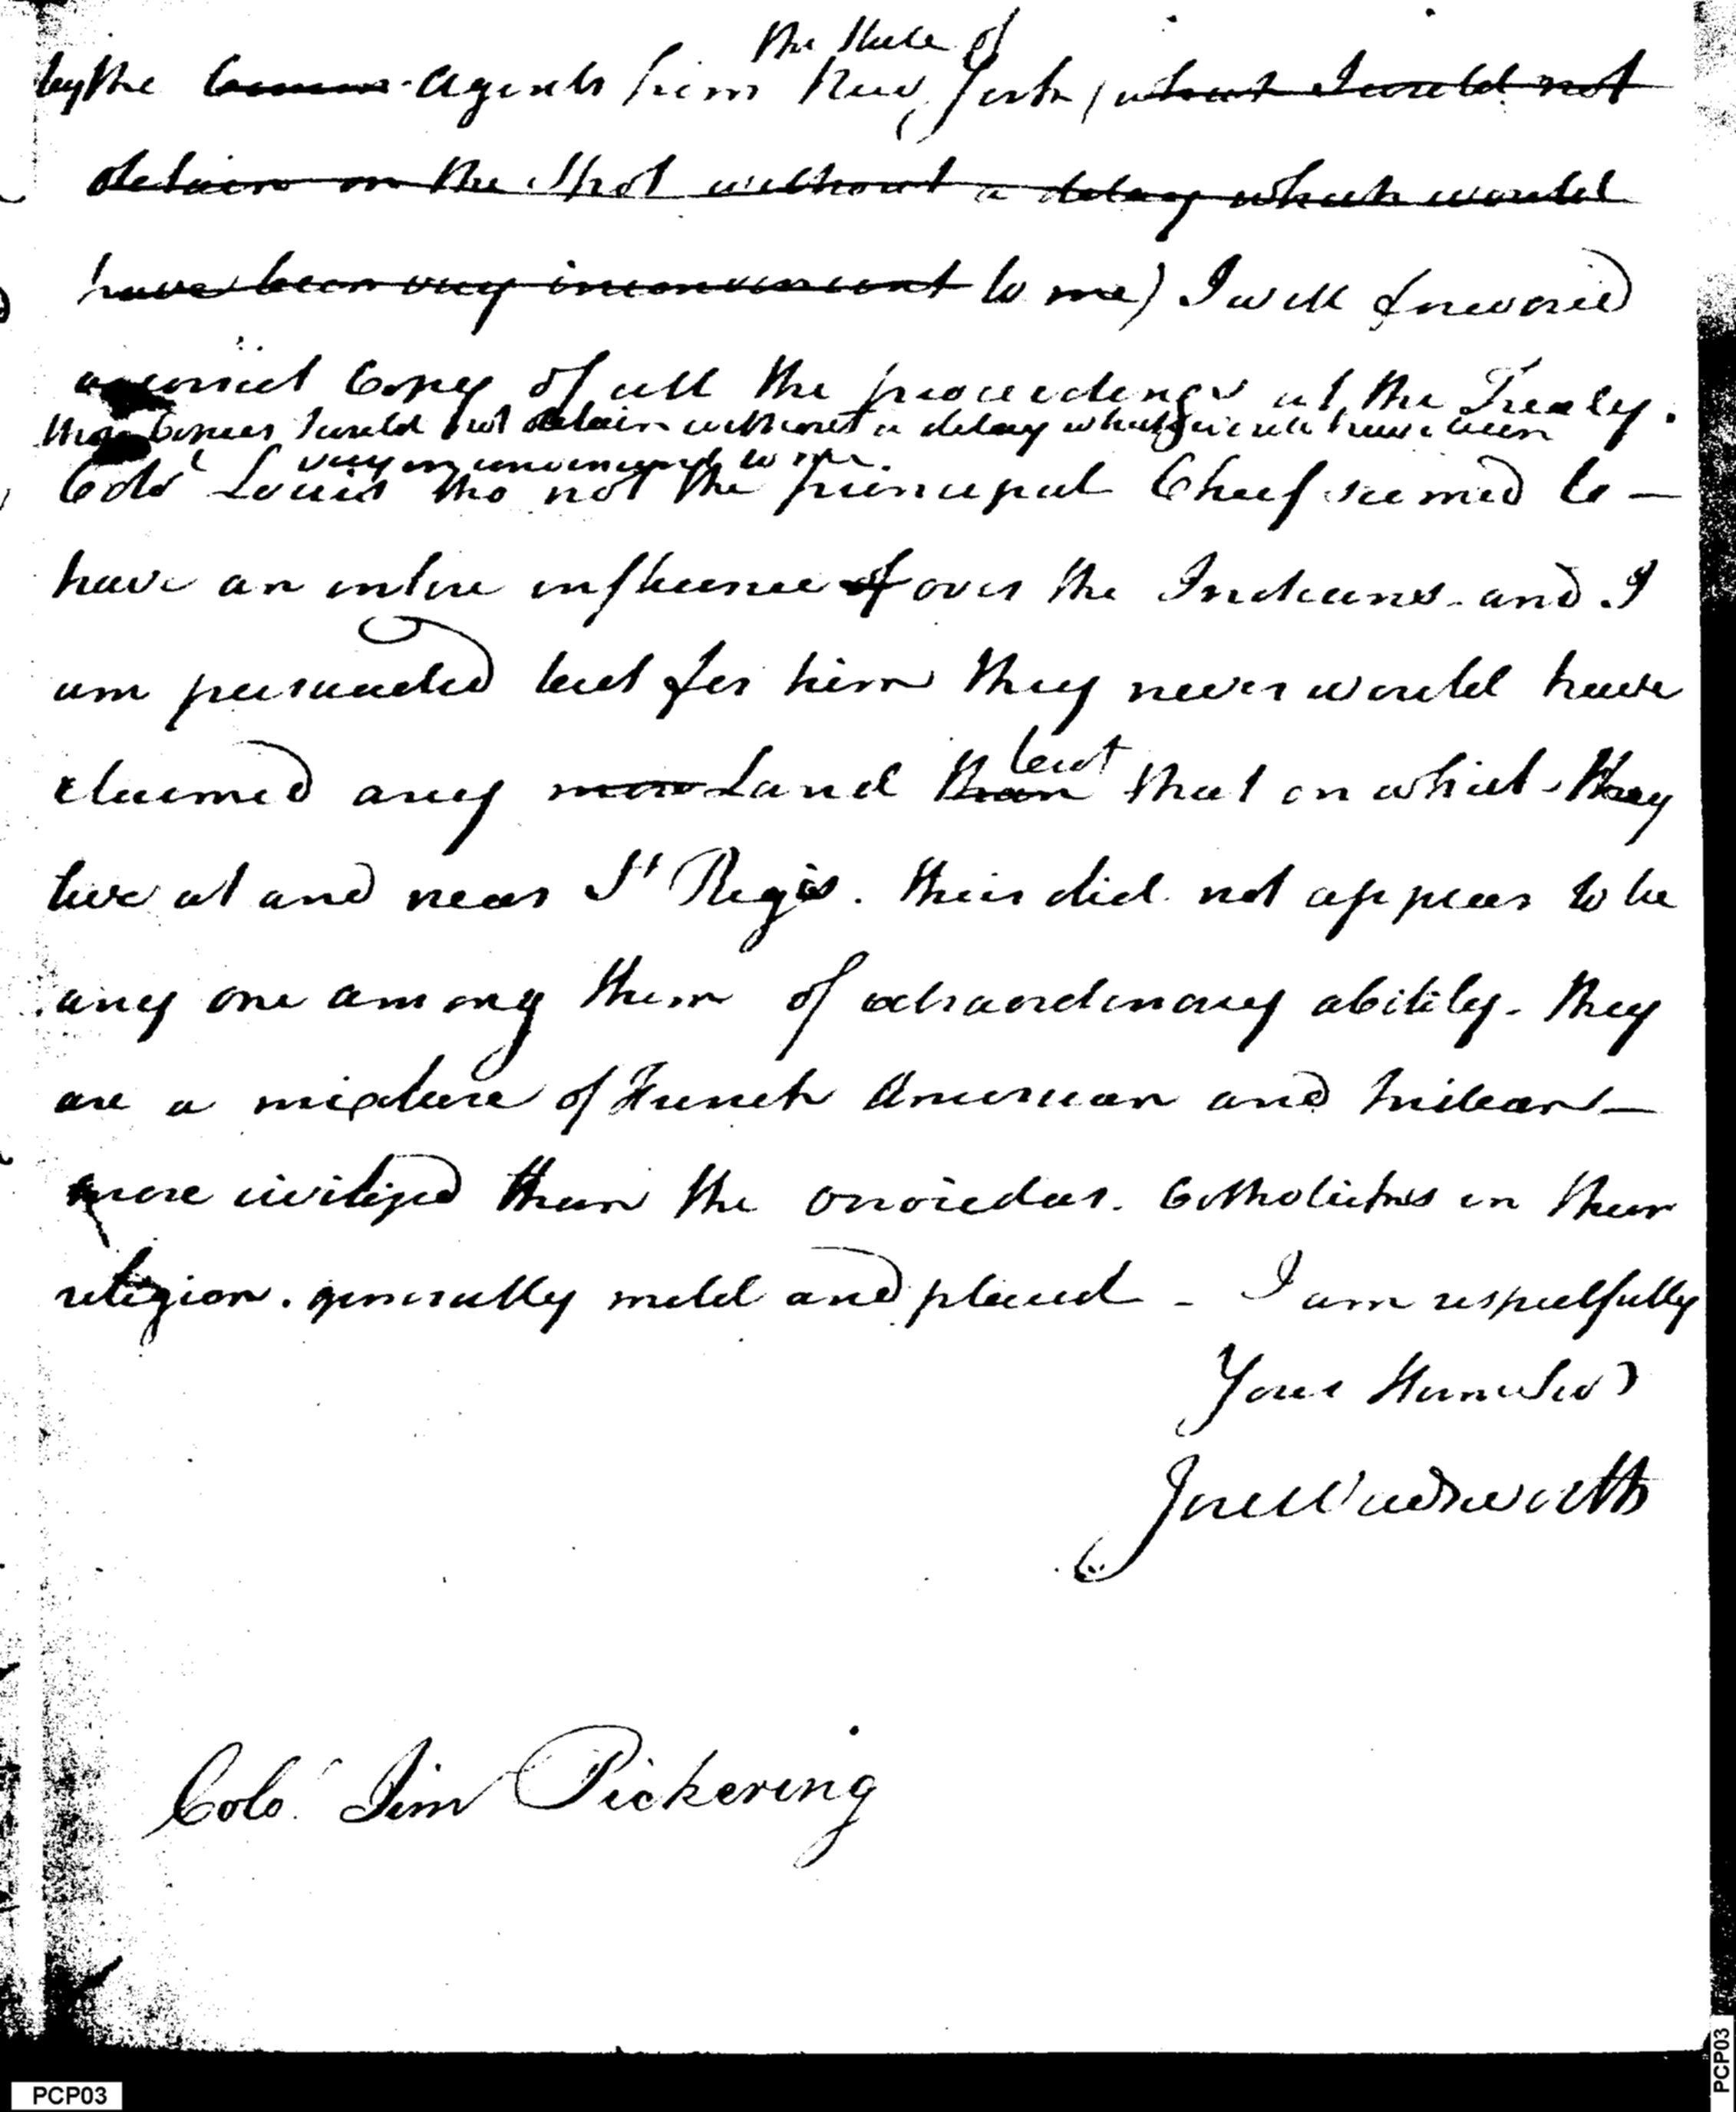 the State of
by the Agents from New York, (what I could not
obtain on the spot without a delay which would
have been very inconvenient to me) I will forward
a correct Copy of all the proceedings at the Treaty.
these Copies I could not obtain without a delay which would have been
very inconvenient to me.
Colo Louis tho not the principal Chief seemed to —
have an intire influence of over the Indians. and I
am persuaded but for him they never would have
but
claimed any more Land than that on which they
live at and near St Regis. their did not appear to be
any one among them of extraordinary ability. they
are a mixture of French American and Indian —
more civilized than the onoiedas. Catholicks in their
religion. generally mild and placid - I am respectfully
Your Hum Ser
Jere Wadsworth
Colo. Tim Pickering
PCP03
PCP03